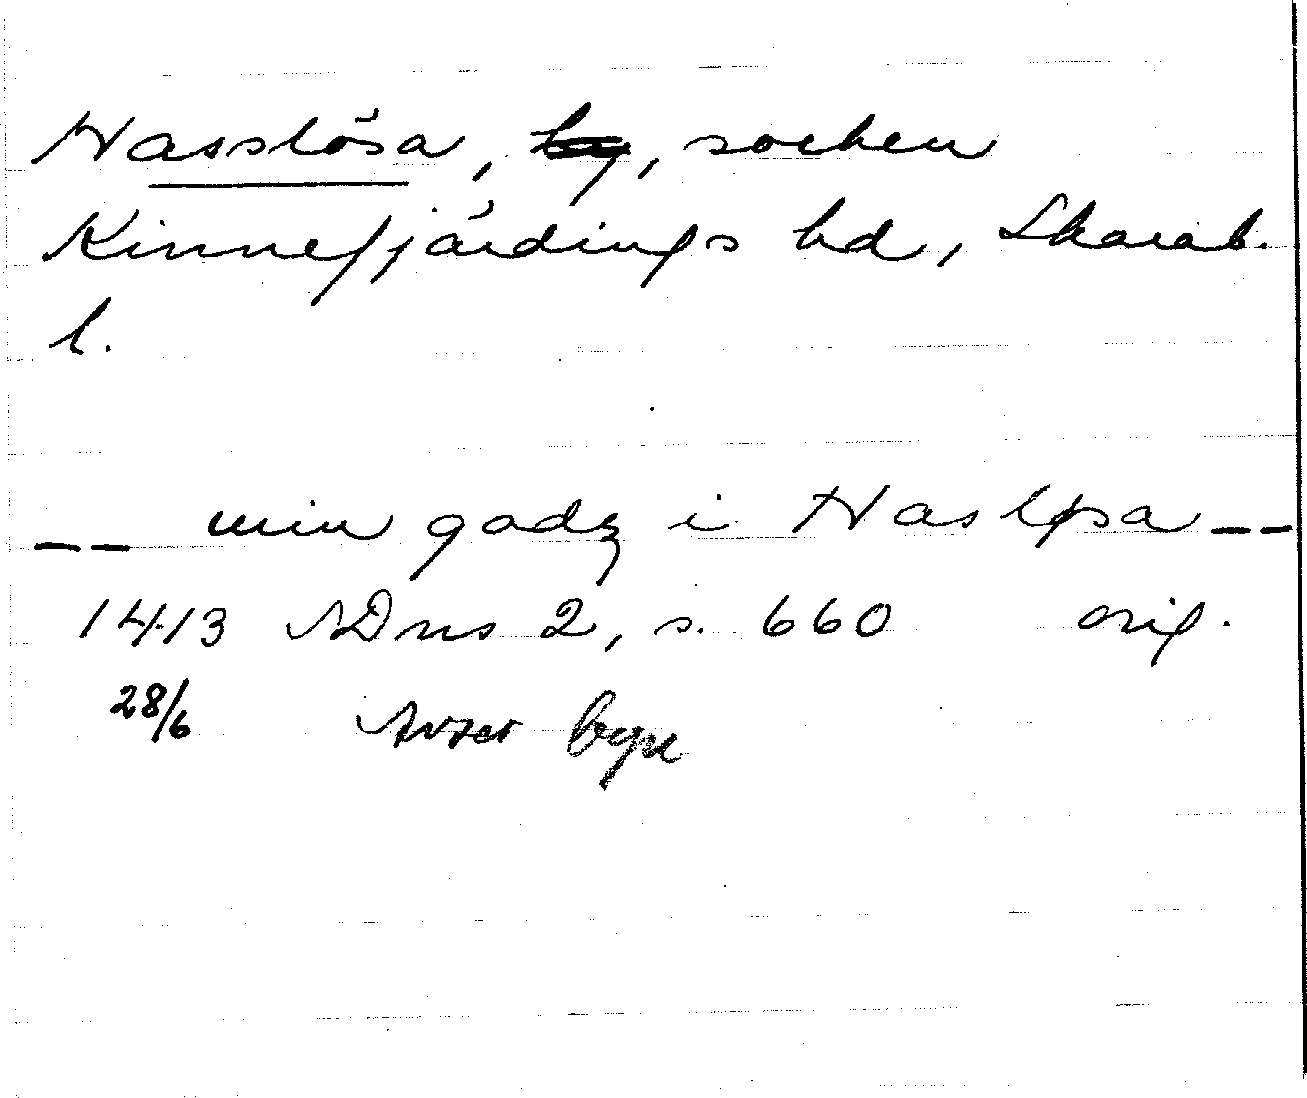 Hasslösa, by, socken
Kinnefjärdings hd, Skarab.
l.
-- min godz i Hasløsa --
1413 SDns 2, s. 660 orig.
28/6 Avser byn